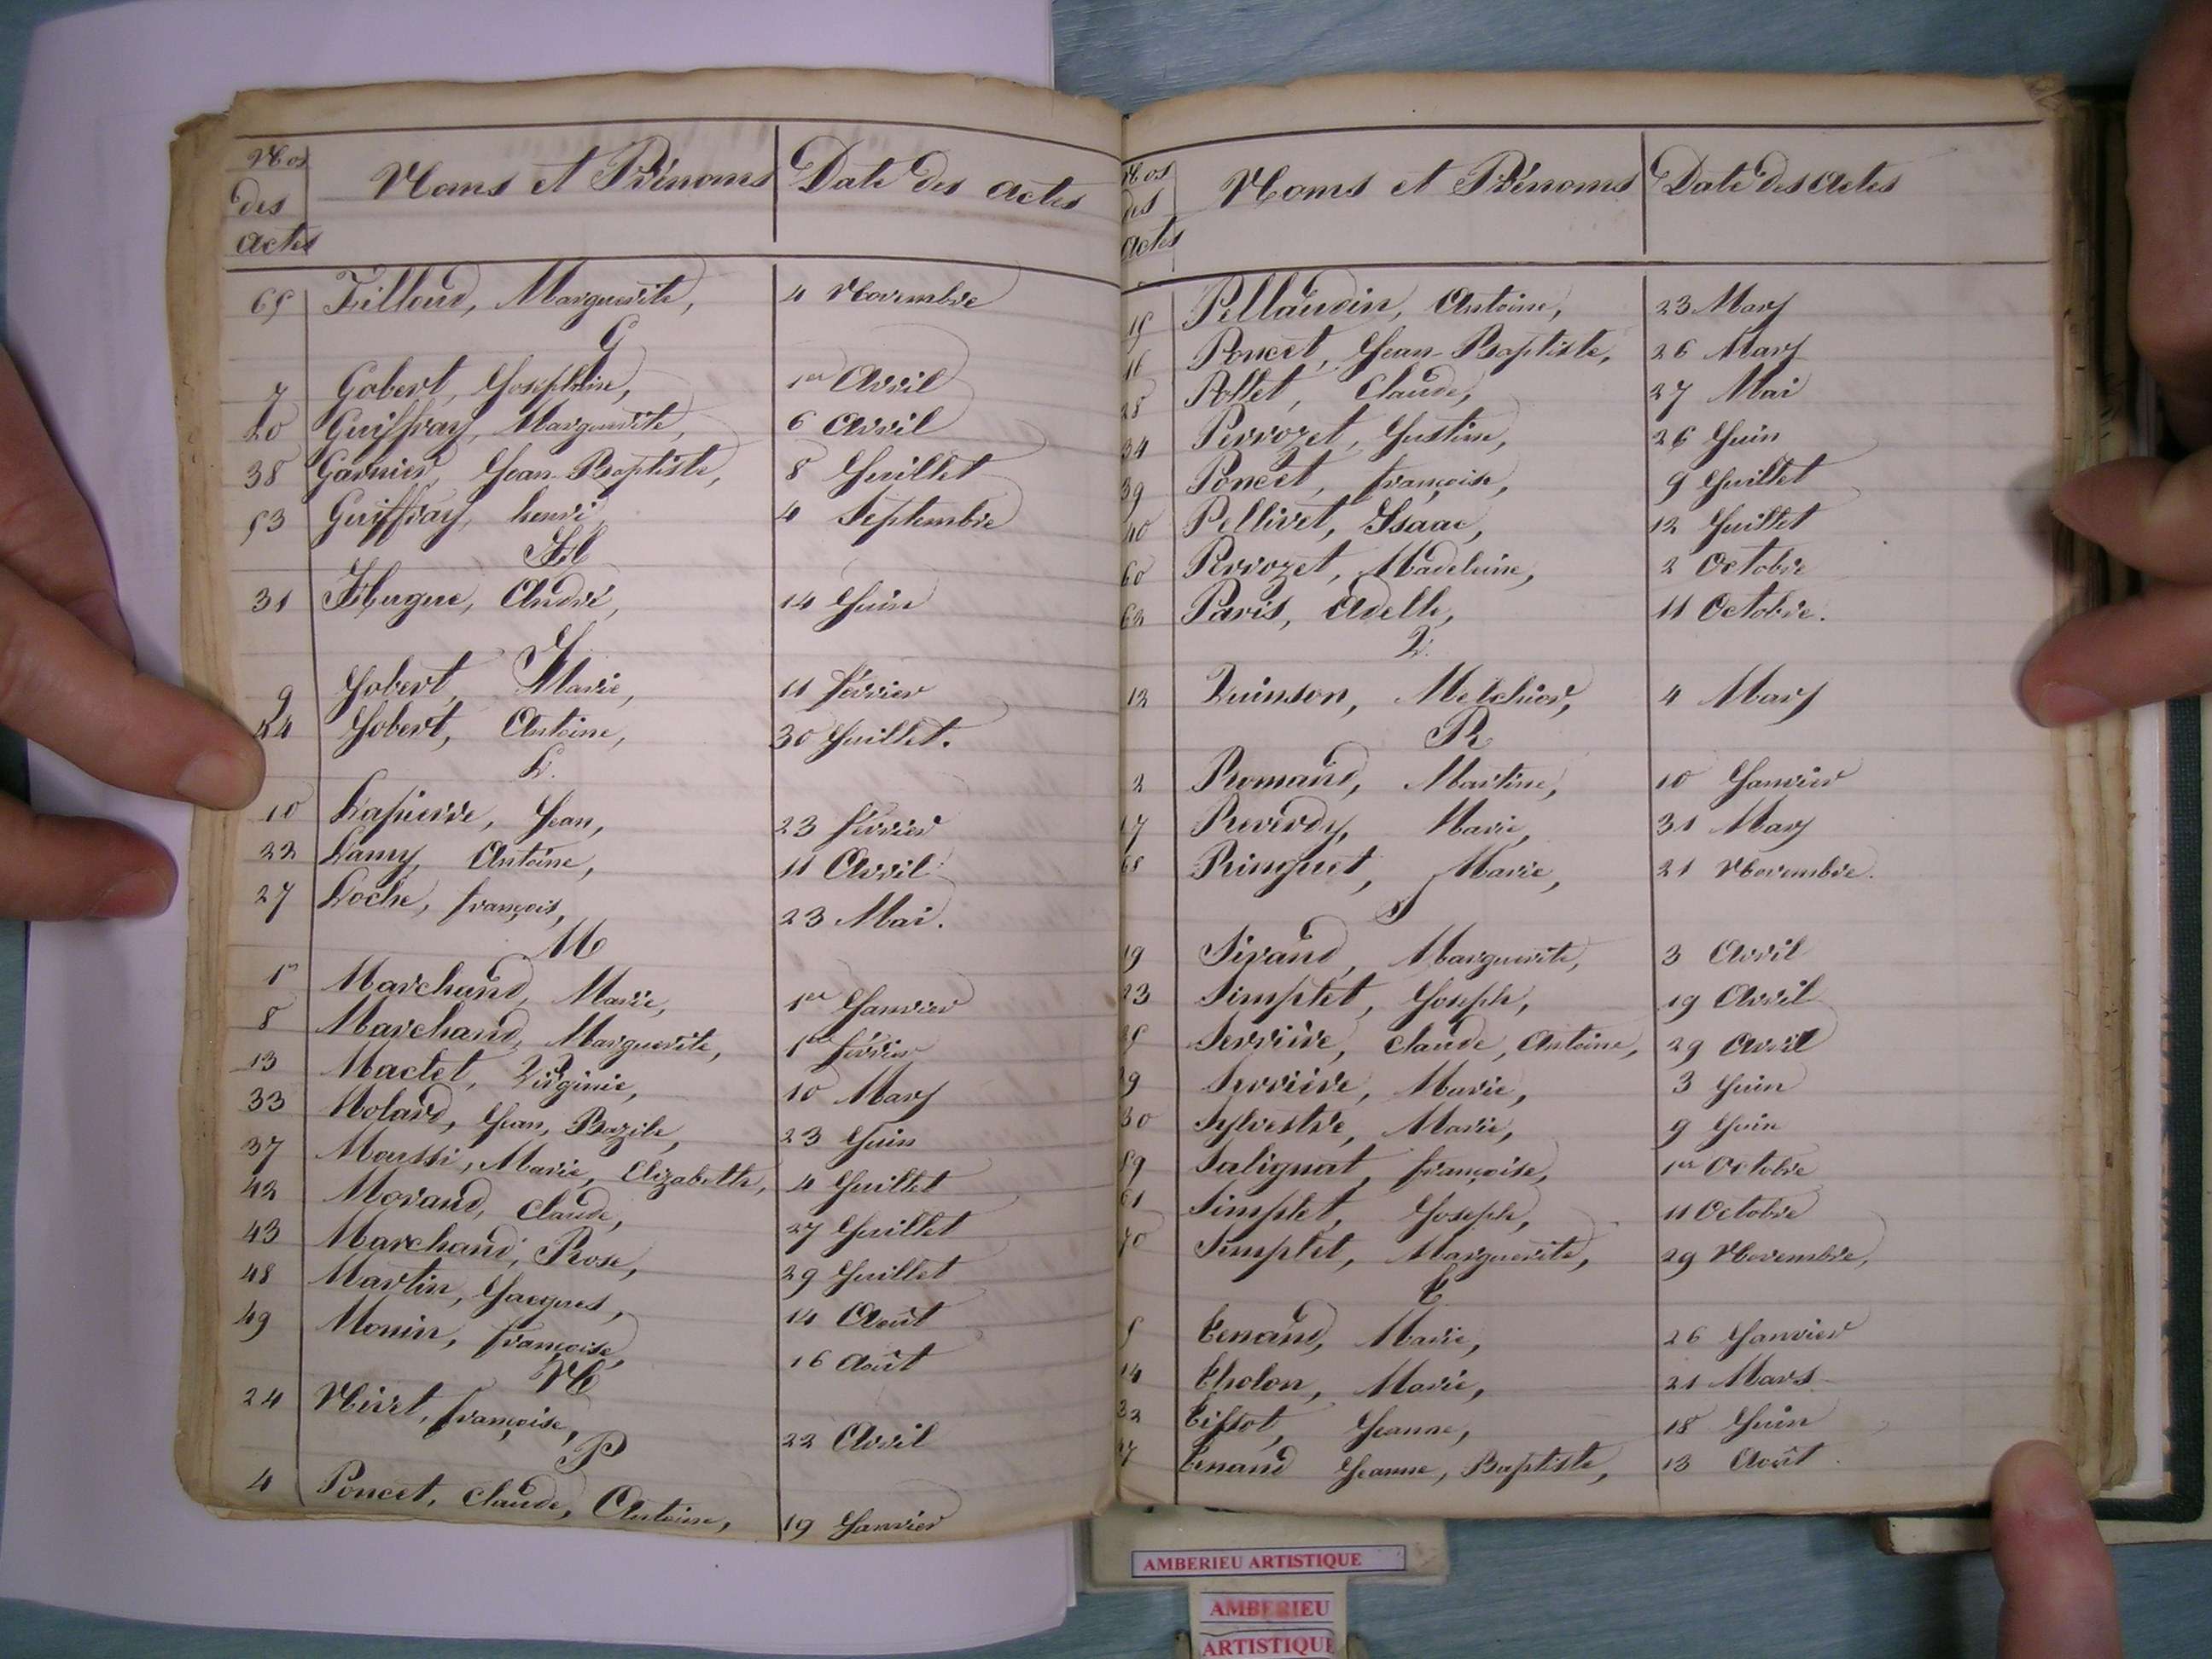 Nos des actes Noms et Prénoms Date des actes
65 Filloud, Marguerite, 4 Novembre
G
7 Gobert, Josephine, 1er Avril
20 Guiffray, Marguerite, 6 Avril
38 Garnier, Jean-Baptiste, 8 Juillet
53 Guiffray, henri, 4 Septembre
H
31 Hugue, André, 14 Juin
J
9 Jobert, Marie, 11 février
44 Jobert, Antoine, 30 Juillet.
L.
10 Lapierre, Jean, 23 février
22 Lamy, Antoine, 11 Avril
27 Loche, françois, 23 Mai.
M
1er Marchand, Marie, 1er Janvier
8 Marchand, Marguerite, 1er février
13 Maclet, Virginie, 10 Mars
33 Molard, Jean, Bazile, 23 Juin
37 Marssi, Marie, Elizabeth, 4 Juillet
42 Morand, Claude, 27 Juillet
43 Marchand, Rose, 29 Juillet
48 Martin, Jacques, 14 Août
49 Monin, françoise, 16 Août
N
24 Nivet, françoise, 22 Avril
P
4 Poncet, Claude, Antoine, 19 Janvier
Nos des actes Noms et Prénoms Date des Actes
15 Pellaudin, Antoine, 23 Mars
16 Poncet, Jean-Baptiste, 26 Mars
28 Pollet, Claude, 27 Mai
34 Perrozet, Justine, 26 Juin
39 Poncet, françoise, 9 Juillet
40 Pellivet, Isaac, 12 Juillet
60 Perrozet, Madeleine, 2 Octobre
62 Paris, Adelle, 11 Octobre.
Q.
12 Quinson, Melchior, 4 Mars
R
2 Romand, Martine, 10 Janvier
17 Reverdy, Marie, 31 Mars
68 Rinquet, Marie, 21 Novembre.
S
19 Sirand, Marguerite, 3 Avril
23 Simplet, Joseph, 19 Avril
25 Serrière, Claude, Antoine, 29 Avril
29 Serrière, Marie, 3 Juin
30 Sylvestre, Marie, 9 Juin
59 Salignat, françoise, 1er Octobre
61 Simplet, Joseph, 11 Octobre
70 Simplet, Marguerite, 29 Novembre,
T.
5 Tenand, Marie, 26 Janvier
14 Tholon, Marie, 21 Mars
32 Tissot, Jeanne, 18 Juin
47 Tenand Jeanne, Baptiste, 13 Août.
AMBERIEU ARTISTIQUE
AMBERIEU
ARTISTIQUE